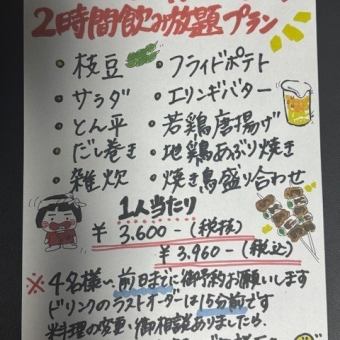 2時間飲み放題プラン
・枝豆 ・フライドポテト
・サラダ ・エリンギバター
・とん平 ・若鶏唐揚げ
・だし巻き ・地鶏あぶり焼き
・雑炊 ・焼き鳥盛り合わせ
1人当たり
¥3.600-(税抜)
¥3.960-(税込)
※4名様い、前日までに御予約お願いします
ドリンクのラストオーダーは15分前です
料理の変更、御相談ありましたら、